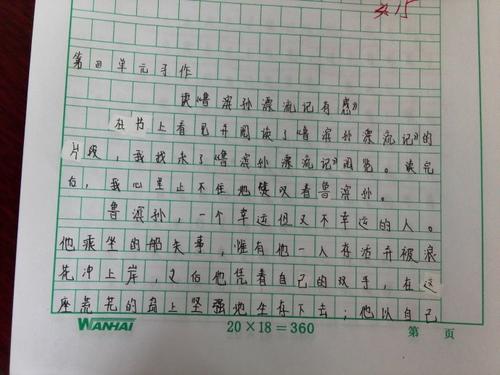 第四单元习作
读《鲁滨孙漂流记有感》
在书上看见并阅读了《鲁滨孙漂流记》的
片段，我找来了《鲁滨孙漂流记》阅览。读完
后，我心里止不住地赞叹着鲁滨孙。
鲁滨孙，一个幸运但又不幸运的人。
他乘坐的船失事，唯有他一人存活并被浪
花冲上岸，又怕他凭着自己的双手，在这
座荒芜的岛上坚强地生存下去；他以自己
WANHAI 20×18=360 第 页